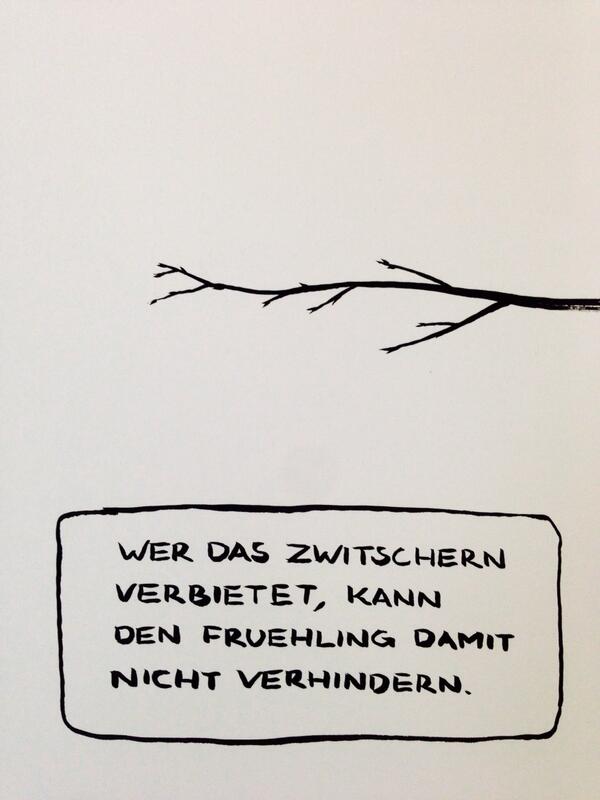 WER DAS ZWITSCHERN
VERBIETET, KANN
DEN FRUEHLING DAMIT
NICHT VERHINDERN.